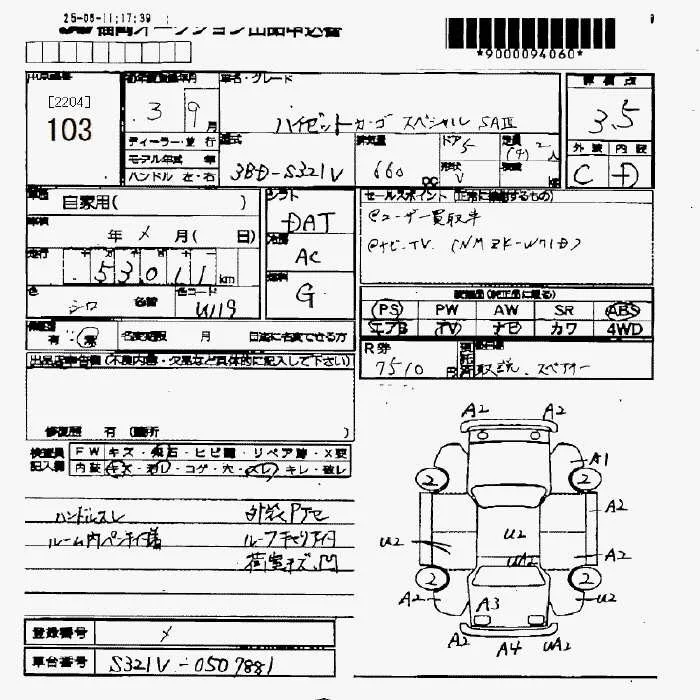 25-06-11;17:39
*9000094060*
[2204]
103
3 9月
ディーラー・並行
モデル年式 年
ハンドル 左・右
車名・グレード
ハイゼットカーゴ スペシャル SAⅢ
型式
3BD-S321V
排気量
660 CC
ドア
5
形状
V
定員
(4) 2人
評価点
3.5
外装 内装
C D
自家用( )
年 メ 月( 日)
走行
53,011 km
色
シロ
色コード
W19
シフト
DAT
冷房
AC
燃料
G
セールスポイント (正常に稼動するもの)
@ユーザー買取車
@ナビ・TV (NMZK-W71D)
PS PW AW SR ABS
エアB TV ナビ カワ 4WD
有・無
名義変更 月 日迄に名変できる方
R券
7510円
取説、スペアキー
出品店申告欄 (不良内容・欠点など具体的に記入して下さい)
修復歴 有 (箇所 )
検査員
記入欄
FW キズ・飛石・ヒビ割・リペア跡・X要
内装 キズ・汚レ・コゲ・穴・スレ・キレ・破レ
ハンドルスレ 外装Pアセ
ルーム内ペンキ付様 ルーフキャリア付
荷室キズ、凹
A2 A2
A1
2 2
A2
U2 U2
A2
UA2
2 2
A2 A3 U2
A2 A4 UA2
登録番号 メ
車台番号 S321V-0507881